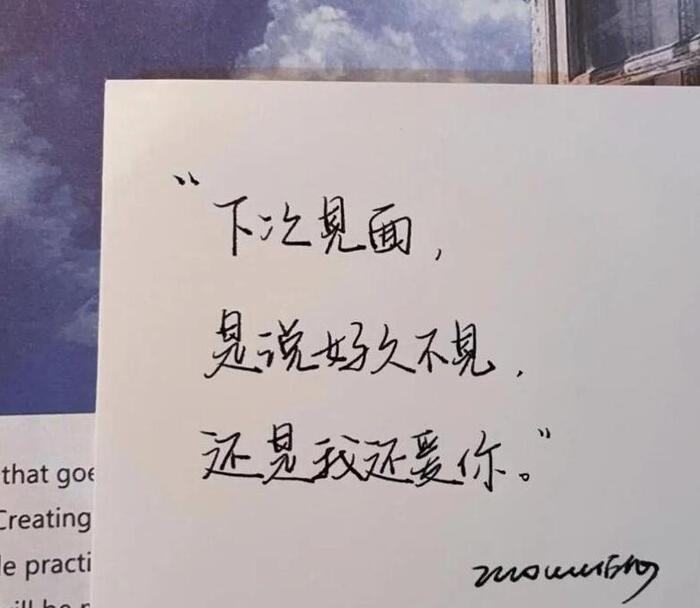 “下次見面，
是说好久不見，
还是我还爱你。”
that goe
Creating
le practi
ill be r